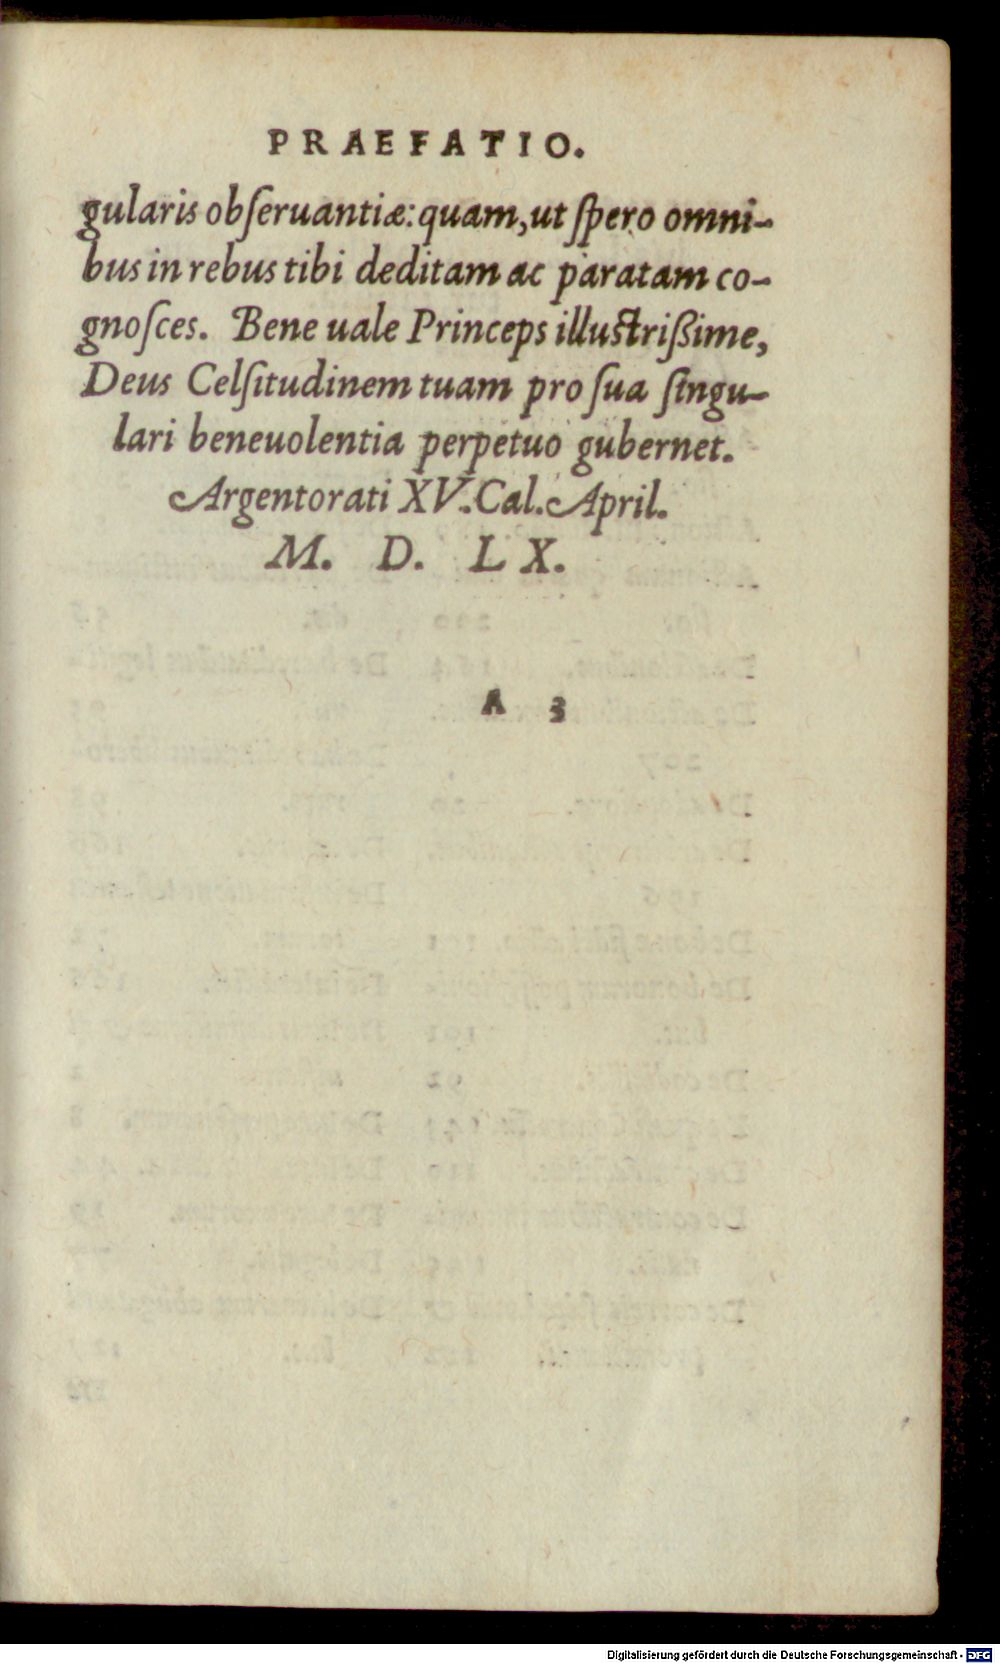 PRAEFATIO.
gularis obſeruantiæ: quam, ut ſpero omni-
bus in rebus tibi deditam ac paratam co-
gnoſces. Bene uale Princeps illuſtrißime,
Deus Celſitudinem tuam pro ſua ſingu-
lari beneuolentia perpetuo gubernet.
Argentorati XV. Cal. April.
M. D. LX.
A 3
Digitalisierung gefördert durch die Deutsche Forschungsgemeinschaft - DFG